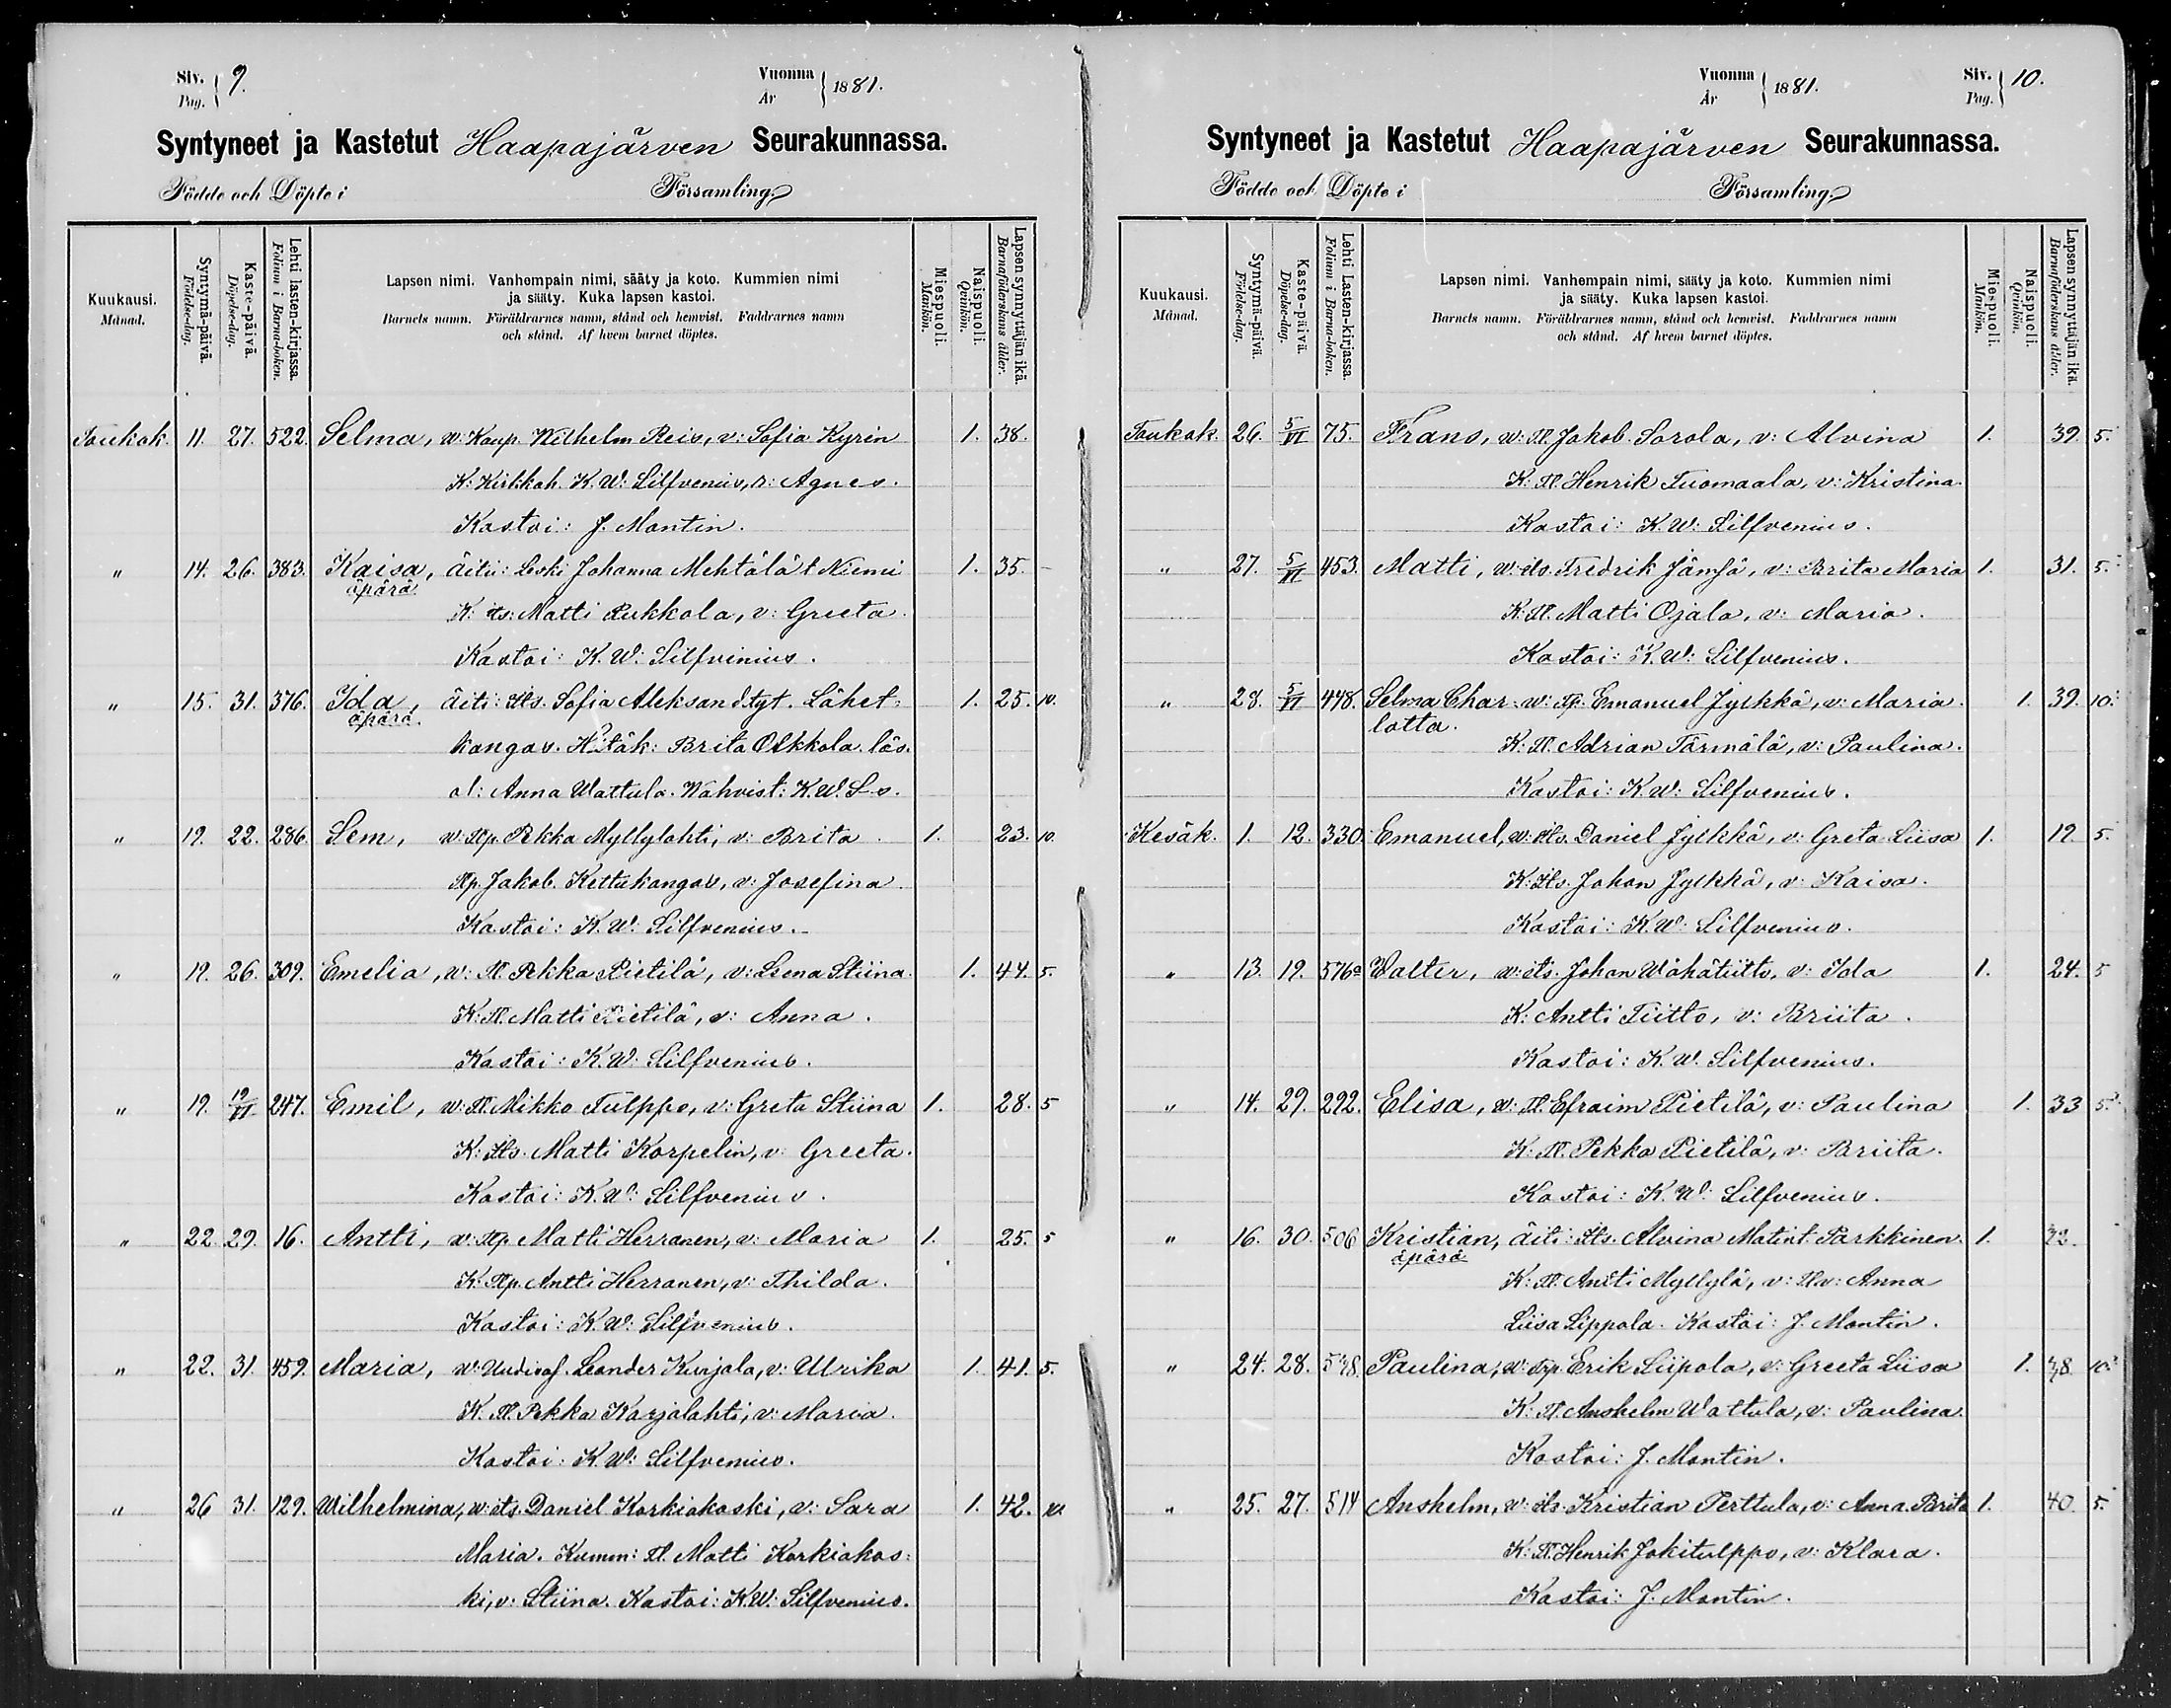 Siv. Pag. 9.
Vuonna År 1881.
Syntyneet ja Kastetut Haapajärven Seurakunnassa.
Födde och Döpte i Församling
Kuukausi. Månad.
Syntymä-päivä. Födelse-dag.
Kaste-päivä. Döpelse-dag.
Lehti lasten-kirjassa. Folium i Barna-boken.
Lapsen nimi. Vanhempain nimi, sääty ja koto. Kummien nimi
ja sääty. Kuka lapsen kastoi.
Barnets namn. Föräldrarnes namn, stånd och hemvist. Faddrarnes namn
och stånd. Af hvem barnet döptes.
Miespuoli. Mankön.
Naispuoli. Qvinkön.
Lapsen synnyttäjän ikä. Barnaföderskans ålder.
Toukok. 11. 27. 522. Selma, w: Kaup. Wilhelm Reis, v: Sofia Kyrin 1. 38.
K: Kirkkoh. K. W: Silfvenius, r: Agnes.
Kastoi: J. Montin.
" 14. 26. 383. Kaisa, äiti: Leski Johanna Mehtälä t Niemi 1. 35. -
äpärä.
K: its: Matti Pukkola, v: Greeta.
Kastoi: K. W: Silfvinius.
" 15. 31. 376. Ida, äiti: Its. Sofia Aleksand.tyt. Lähet- 1. 25. 10.
äpärä.
kangas. Brita Olkkola läs.
ol: Anna Wattula. Wahvist: K. W. S-s.
" 19. 22. 286. Sem, w: Tp. Pekka Myllylahti, v: Brita 1. 23. 10.
Tp. Jakob. Kettukangas, v: Josefina
Kastoi: K. W: Silfvenius.
" 19. 26. 309. Emelia, w: Tl. Pekka Pietilä, v: Leena Stiina 1. 44. 5.
K: Tl. Matti Pietilä, v: Anna.
Kastoi: K. W: Silfvenius.
" 19. 12/VI 247. Emil, w: Tl. Mikko Tulppo, v: Greta Stiina 1. 28. 5
K: Its. Matti Korpelin, v: Greeta.
Kastoi: K. W: Silfvenius.
" 22. 29. 16. Antti, w: Tp. Matti Herranen, v: Maria 1. 25. 5
K: Tp. Antti Herranen, v: Thilda.
Kastoi: K. W: Silfvenius.
" 22. 31. 459. Maria, w: Leander Kuijala, v: Ulrika 1. 41. 5.
K. Tl. Pekka Karjalahti, v: Maria.
Kastoi: K. W: Silfvenius.
" 26 31. 129. Wilhelmina, w: its. Daniel Korkiakoski, v: Sara 1. 42. 10.
Maria. Kumm: Tl. Matti Korkiakos-
ki, v: Stiina. Kastoi: K. W: Silfvenius.
Vuonna År 1881.
Siv. Pag. 10.
Syntyneet ja Kastetut Haapajärven Seurakunnassa.
Födde och Döpte i Församling
Kuukausi. Månad.
Syntymä-päivä. Födelse-dag.
Kaste-päivä. Döpelse-dag.
Lehti Lasten-kirjassa. Folium i Barna-boken.
Lapsen nimi. Vanhempain nimi, sääty ja koto. Kummien nimi
ja sääty. Kuka lapsen kastoi.
Barnets namn. Föräldrarnes namn, stånd och hemvist. Faddrarnes namn
och stånd. Af hvem barnet döptes.
Miespuoli. Mankön.
Naispuoli. Qvinkön.
Lapsen synnyttäjän ikä. Barnaföderskans ålder.
Toukok. 26. 5/VI 75. Frans, w: Tl. Jakob. Sorola, v: Alvina 1. 39. 5.
K: Tl. Henrik Tuomaala, v: Kristina
Kastoi: K. W: Silfvenius.
" 27. 5/VI 453. Matti, w: its. Fredrik Jämsä, v: Brita Maria 1. 31. 5.
K: Tl. Matti Ojala, v: Maria.
Kastoi: K. W: Silfvenius.
" 28. 5/VI 448. Selma Char- w: Tp. Emanuel Jylkkä, v: Maria 1. 39. 10.
lotta.
K: Tl. Adrian Tärmälä, v: Paulina.
Kastoi: K. W: Silfvenius.
Kesäk. 1. 12. 330. Emanuel, w: Its. Daniel Jylkkä, v: Greta Liisa 1. 19. 5.
K: Its. Johan Jylkkä, v: Kaisa.
Kastoi: K. W: Silfvenius.
" 13. 19. 576a Walter, w: its. Johan Wähätiitto, v: Ida 1. 24. 5
K: Antti Tiitto, v: Briita.
Kastoi: K. W. Silfvenius.
" 14. 29. 292. Elisa, w: Tl. Efraim Pietilä, v: Paulina 1. 33 5.
K: Tl. Pekka Pietilä, v: Briita.
Kastoi: K. W: Silfvenius.
" 16. 30. 506 Kristian, äiti: Its. Alvina Matint. Parkkinen. 1.
äpärä
K: Tl. Antti Myllylä, v: Anna
Liisa Lippola. Kastoi: J. Montin.
" 24. 28. Paulina, w: Tp. Erik Siipola, v: Greeta Liisa 1. 38. 10.
K: Tl. Anshelm Wattula, v: Paulina.
Kastoi: J. Montin.
" 25. 27. 514 Anshelm, w: its. Kristian Perttula, v: Anna Brita 1. 40. 5.
K: Tl. Henrik Jokitulppo, v: Klara.
Kastoi: J. Montin.